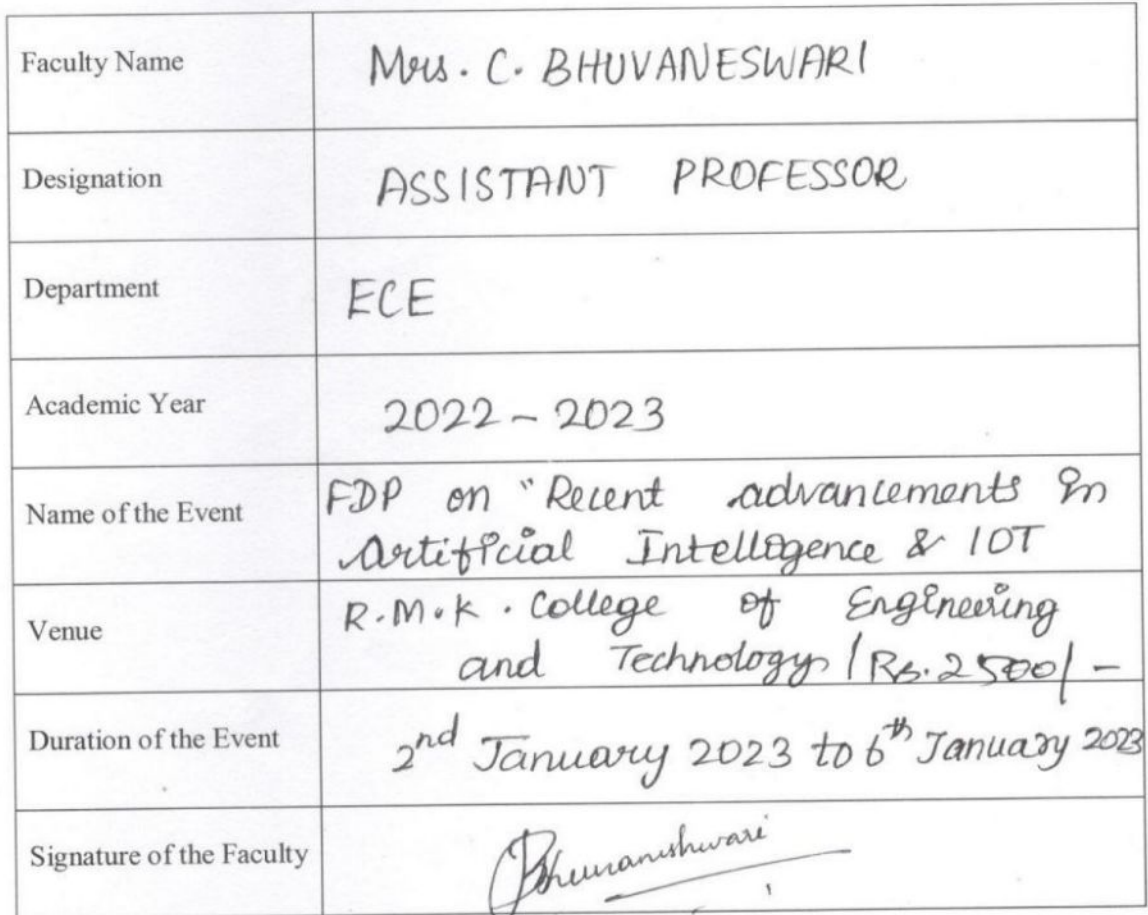 Faculty Name Mrs. C. BHUVANESWARI
Designation ASSISTANT PROFESSOR
Department ECE
Academic Year 2022 - 2023
Name of the Event FDP on "Recent advancements in
Artificial Intelligence & IOT
Venue R.M.K. College of Engineering
and Technology / Rs. 2500/-
Duration of the Event 2nd January 2023 to 6th January 2023
Signature of the Faculty Bhuvaneshwari